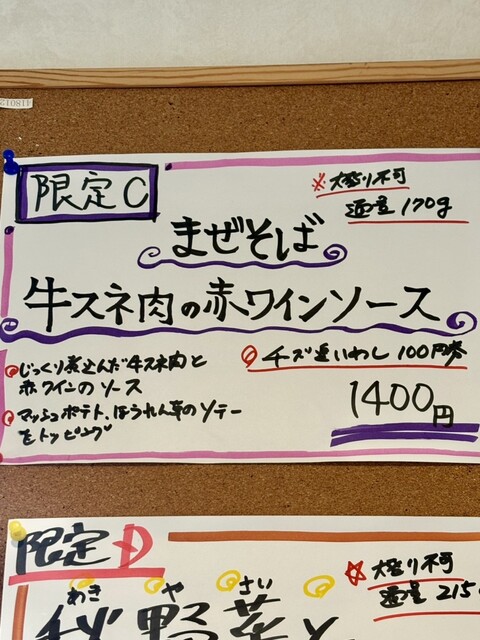 限定C
※大盛り不可
通量170g
まぜそば
牛スネ肉の赤ワインソース
じっくり煮込んだ牛スネ肉と
赤ワインのソース
マッシュポテト、ほうれん草のソテー
をトッピング
チーズ追いめし 100円券
1400円
限定D
大盛り不可
通量215
秋野菜と
あき や さい